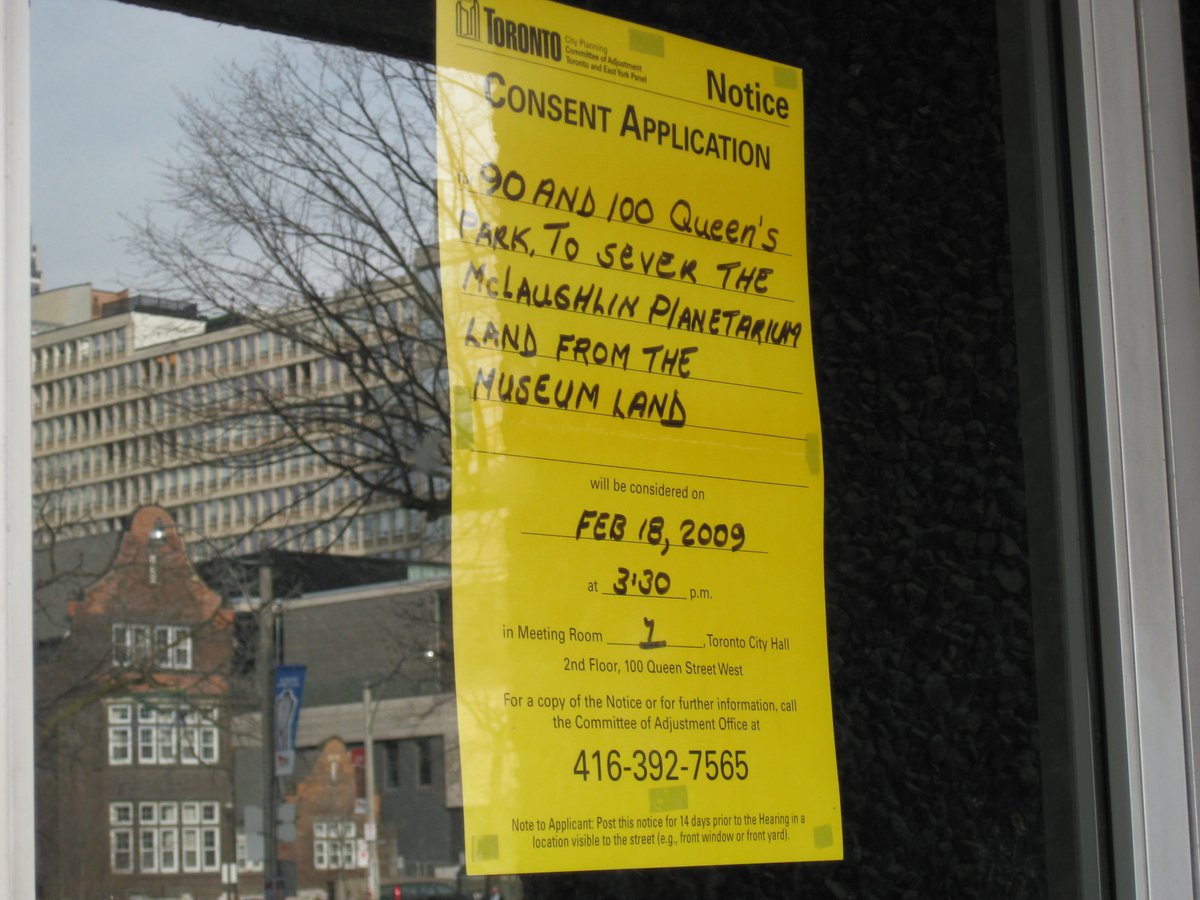 TORONTO
City Planning
Committee of Adjustment
Toronto and East York Panel
Notice
CONSENT APPLICATION
90 AND 100 Queen's
PARK, TO SEVER THE
McLAUGHLIN PLANETARIUM
LAND FROM THE
MUSEUM LAND
will be considered on
FEB 18, 2009
at 3:30 p.m.
in Meeting Room 1, Toronto City Hall
2nd Floor, 100 Queen Street West
For a copy of the Notice or for further information, call
the Committee of Adjustment Office at
416-392-7565
Note to Applicant: Post this notice for 14 days prior to the Hearing in a
location visible to the street (e.g., front window or front yard).